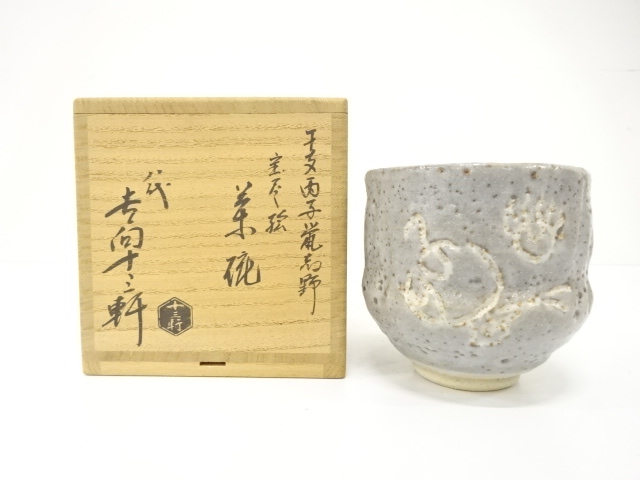 干支丙子鼠志野
宝尽し絵
茶碗
八代
吉向十三軒
十三軒